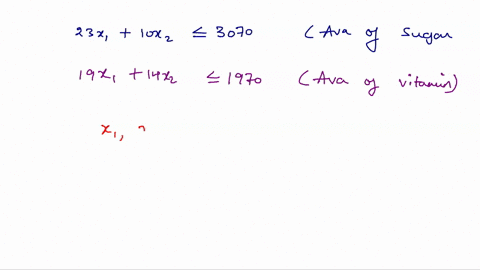 23x₁ + 10x₂ ≤ 3070 (Ava of sugar
19x₁ + 14x₂ ≤ 1970 (Ava of vitamin)
x₁,